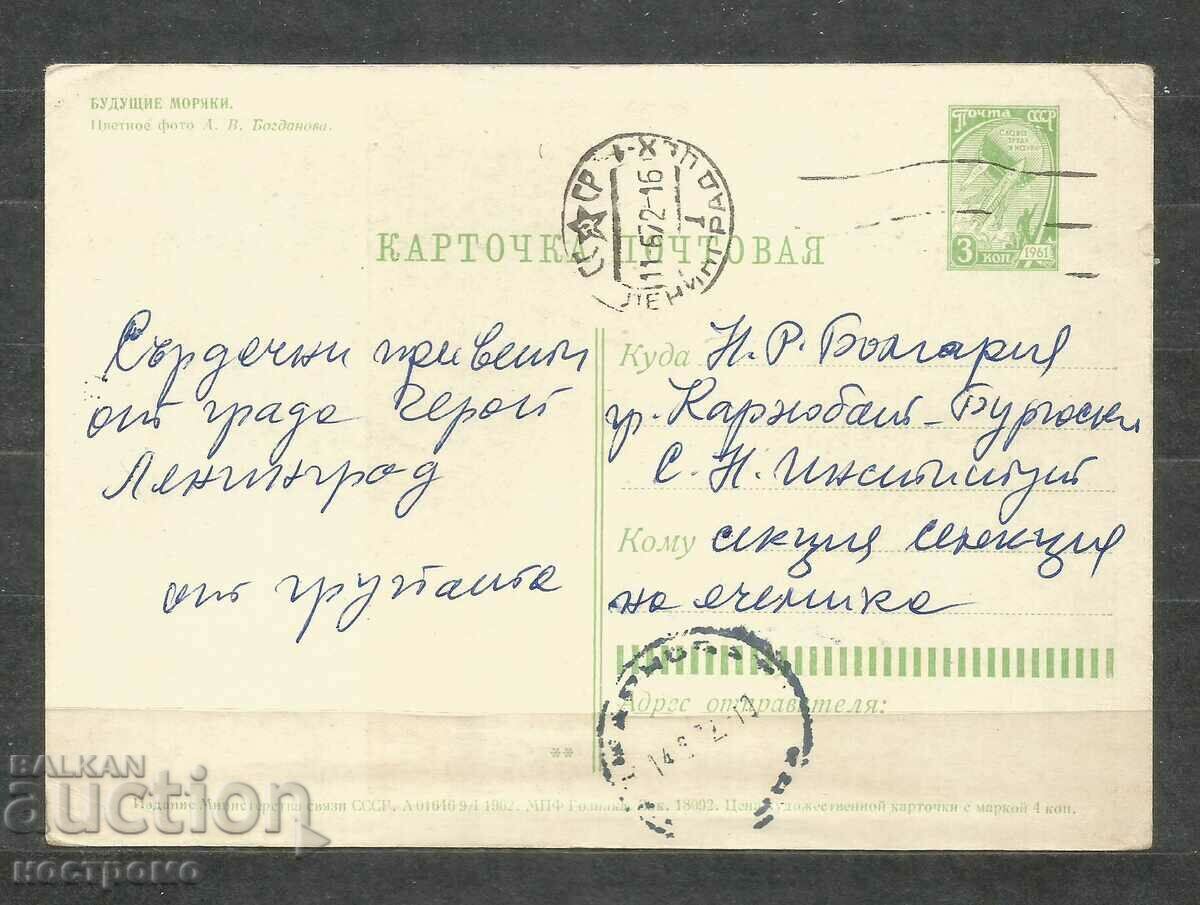 БУДУЩИЕ МОРЯКИ.
Цветное фото А. В. Богданова.
ПОЧТА СССР
СЛАВА
ТРУДУ
И НАУКЕ
3 КОП
1961
СССР
11.6.72-16
ЛЕНИНГРАД
КАРТОЧКА ПОЧТОВАЯ
Сърдечни привети
от града Герой
Ленинград
от групата
Куда Н. Р. България
гр. Карнобат - Бургаски
С. Н. Институт
Кому секция селекция
на ечемика
Адрес отправителя:
**
Издание Министерства связи СССР. А 01646 9/I 1962. МПФ Гознака. Зак. 18092. Цена художественной карточки с маркой 4 коп.
BALKAN
auction
ностромо